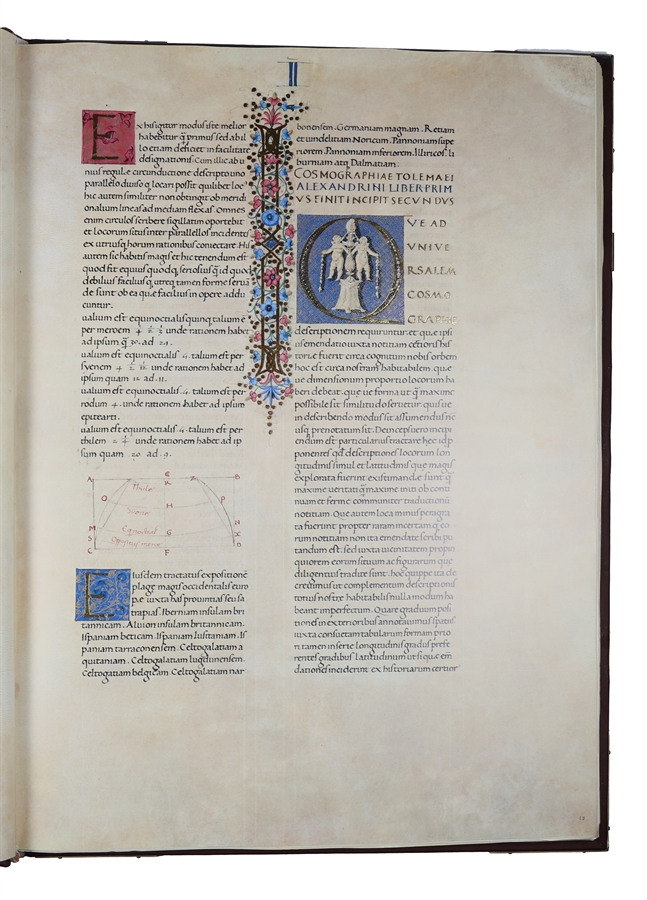 II
Ex his igitur modus iste melior
habebitur q̃ primus sed ab il
lo etiam deficiet in facilitate
designationis. Cum illic ab u
nius regulę circunductione descripto uno
parallelo diuiso q locari possit quilibet loc⁹
hic autem similiter non obtingit ob meridi
onalium lineas ad mediam flexas. Omnes
enim circulos scribere sigillatim oportebit
et locorum situs inter parallelos incidentes
ex utriusq horum rationibus coniectare. His
autem sic habitis magis et hic tenendum est
quod fit equius quodq seriosius q̃ id quod
debilius facilius q utręq tamen formę seruā
dę sunt ob ea quę facilius in opere addu
cuntur.
ualium est equinoctialis quinq talium ē
per meroem unde rationem habet
ad ipsum q̃ 30. ad. 29.
ualium est equinoctialis 5. talium est per
syenem unde rationem habet ad
ipsum quam 12. ad. 11.
ualium est equinoctialis 5. talium est per
rodum 4. unde rationem habet ad ipsum
epitearti.
ualium est equinoctialis 5. talium est per
thilem 2 unde rationem habet ad ip
sum quam 20. ad. 9.
A E B
K
Thile
O P
H
Siene
M N
Equoctial
G
S X
C F D
Eiusdem tractatus expositionē
plagę magis occidentalis euro
pę iuxta has prouintias seu sa
trapias. Iberniam insulam bri
tannicam. Aluion insulam britannicam.
Ispaniam beticam. Ispaniam lusitaniam. Is
paniam tarraconensem. Celtogalatiam a
quitaniam. Celtogalatiam lugdunensem.
Celtogatiam belgicam. Celtogatiam nar
bonensem. Germaniam magnam. Retiam
et uindelitiam Noricum. Pannoniam supe
riorem. Pannoniam inferiorem. Illiricos. li
burniam atq Dalmatiam.
COSMOGRAPHIAE TOLEMAEI
ALEXANDRINI LIBER PRIM
VS FINIT INCIPIT SECVNDVS
QVE AD
VNIVE
RSALEM
COSMO
GRAPHIE
descriptionem requiruntur. et quę ipsi
us emendatio iuxta notitiam cęteris his
torię fuerit circa cognitum nobis orbem
hoc est circa nostram habitabilem. quę
ue dimensionum proportio locorum ha
beri debeat. quę ue forma ut q̃ maxime
possibile sit similitudo seruetur. quis ue
in describendo modus sit assumendus hu
usq prenotatum sit. Deinceps uero incipi
endum est particularius tractare hec id p
ponentes qd descriptiones locorum lon
gitudinis simul et latitudinis que magis
explorata fuerint existimandę sunt q̃
maxime ueritati q̃ maxime initi ob conti
nuam et fermę communiter traductionū
notitiam. Que autem loca minus peragra
ta fuerunt propter raram incertam q eo
rum notitiam non ita emendate scribi pu
tandum est. sed iuxta uicinitatem propri
quiorem eorum situum ac figurarum quę
diligentius traditę sunt. hoc quippe ita de
creuimus ut complementum descriptionis
totius nostrę habitabilis nulla modum ha
beant imperfectum. Quare graduum posi
tiones in exterioribus annotauimus spatiis
iuxta consuetam tabularum formam prio
ri tamen in serie longitudinis gradus prefe
rentes gradibus latitudinum ut si quę em
dationes inciderint ex historiarum certior
18